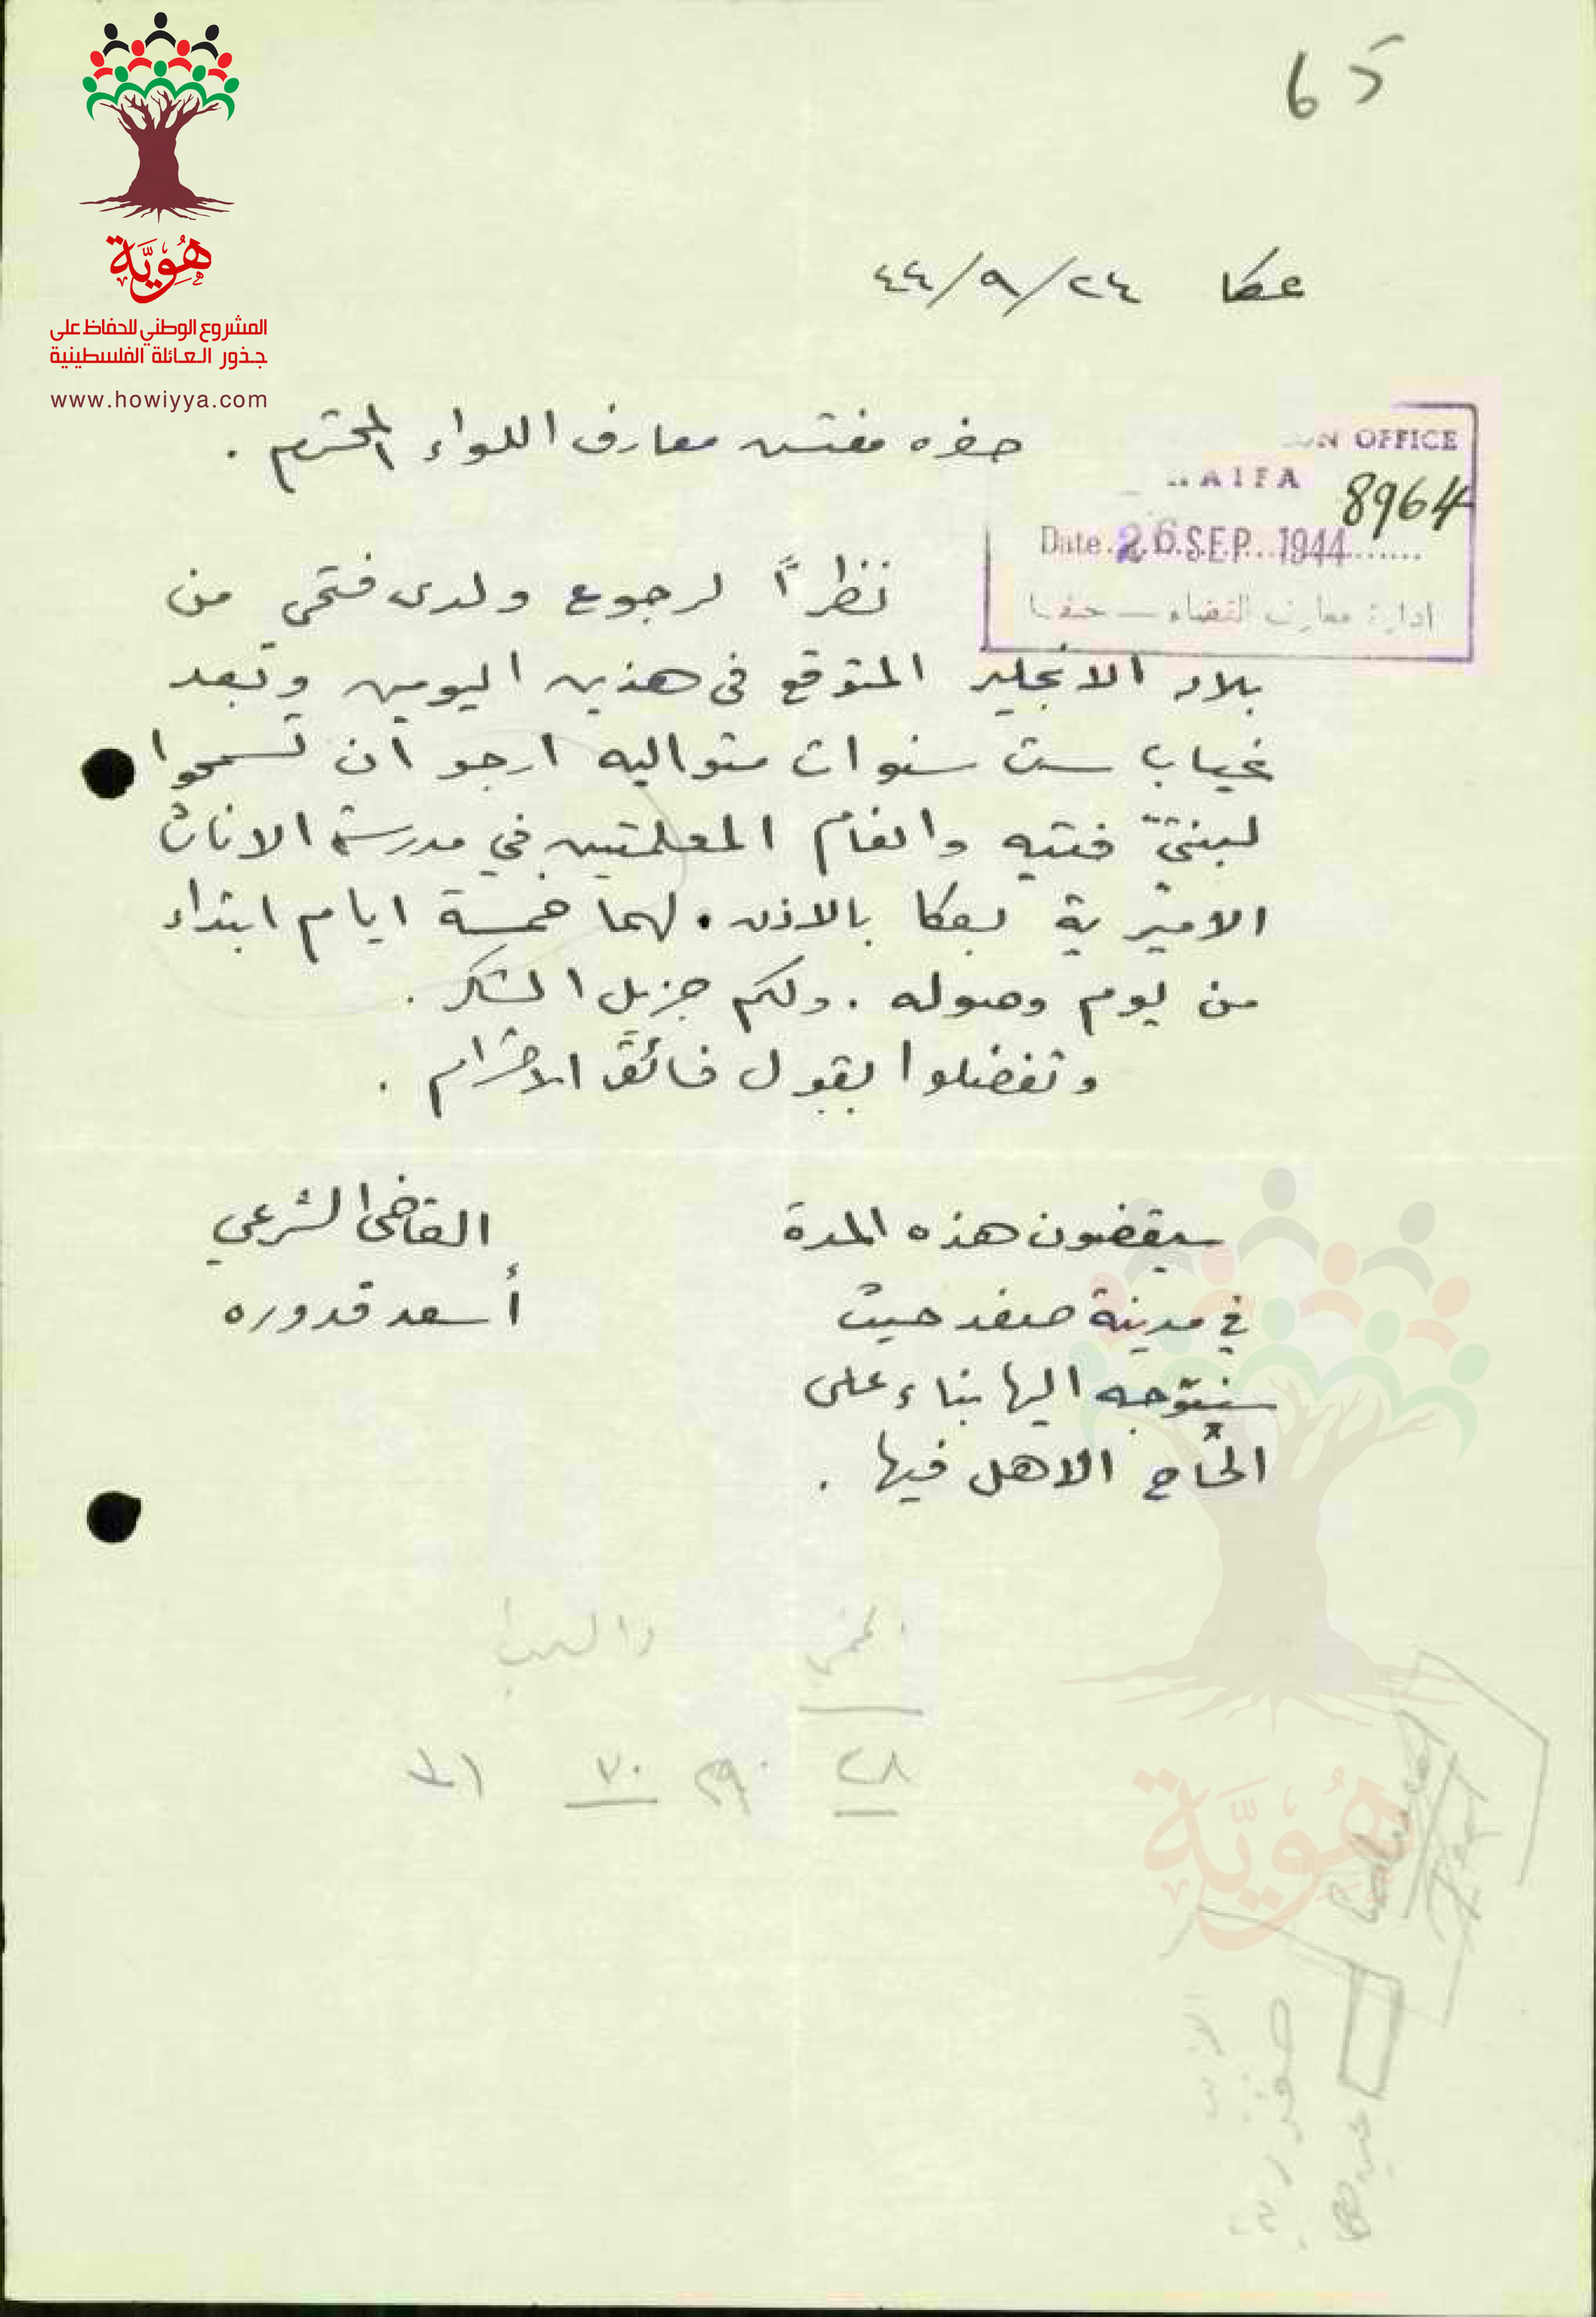 65
هُوِيَّة
المشروع الوطني للحفاظ على
جذور العائلة الفلسطينية
www.howiyya.com
عكا ٢٤/٩/٤٤
حضره مفتش معارف اللواء المحترم .
OFFICE
HAIFA
8964
Date. 26 SEP. 1944
ادارة معارف القضاء — حيفا
نظراً لرجوع ولدى فتحى من
بلاد الانجليز المتوقع فى هذين اليومين وبعد
غياب ست سنوات متواليه ارجو ان تسمحوا
لبنتيّ فتيه وانعام المعلمتين في مدرسة الاناث
الاميرية بعكا بالاذن . لهما خمسة ايام ابتداء
من يوم وصوله . ولكم جزيل الشكر .
وتفضلوا بقبول فائق الاحترام .
القاضى الشرعي
أسعد قدوره
سيقضون هذه المدة
في مدينة صفد حيث
سنتوجه اليها بناء على
الحاح الاهل فيها .
والسبت
٢٨ ٢٩ ٣٠
هُوِيَّة